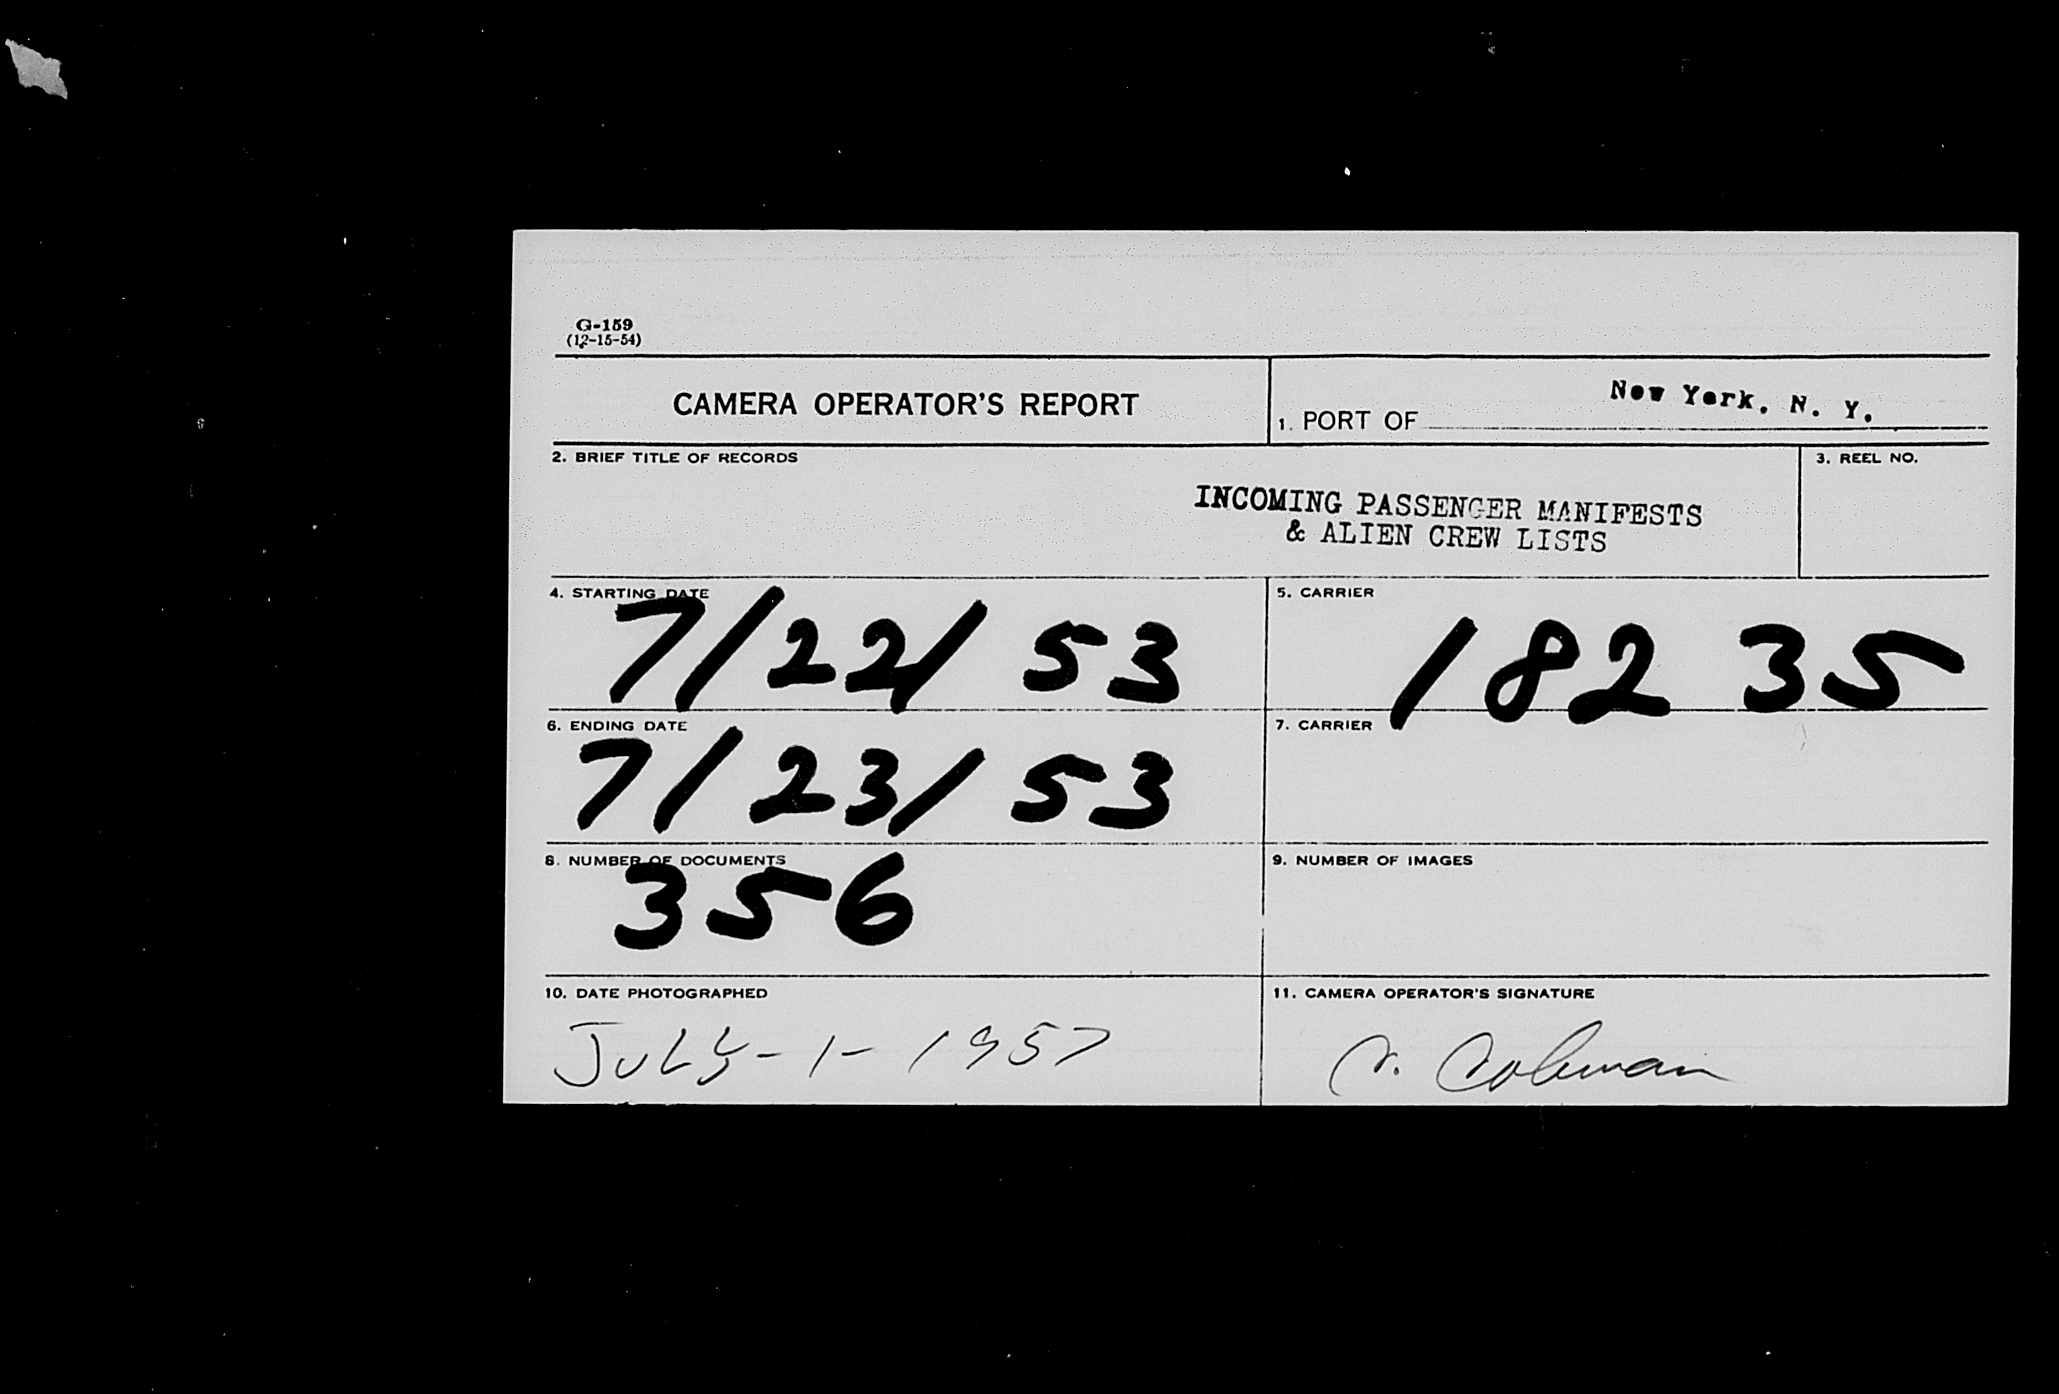 G-159
(12-15-54)
CAMERA OPERATOR'S REPORT
1. PORT OF New York, N. Y.
2. BRIEF TITLE OF RECORDS
INCOMING PASSENGER MANIFESTS
& ALIEN CREW LISTS
3. REEL NO.
4. STARTING DATE
7/22/53
5. CARRIER
18235
6. ENDING DATE
7/23/53
7. CARRIER
8. NUMBER OF DOCUMENTS
356
9. NUMBER OF IMAGES
10. DATE PHOTOGRAPHED
JULY-1-1957
11. CAMERA OPERATOR'S SIGNATURE
Coleman